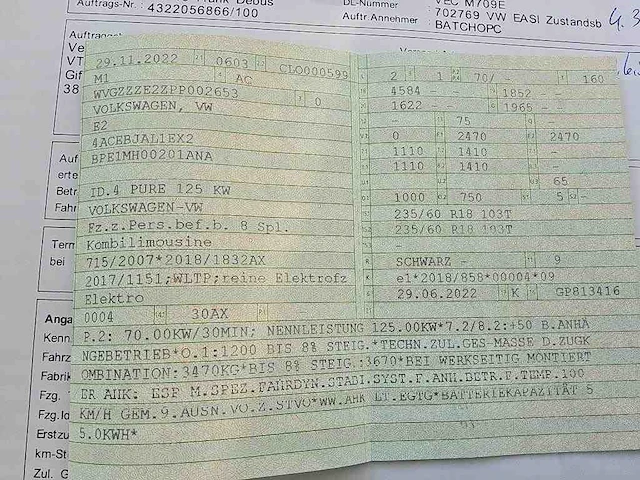 Auftrags-Nr. : 4322056866/100
DL-Nummer
VEC M709E
: 702769 VW EASI Zustandsb
Auftr.Annehmer BATCHOPC
29.11.2022 0603 CLO000599
M1 AC
WVGZZZE2ZPP002653 0
VOLKSWAGEN, VW
E2
4ACEBJAL1EX2
BPE1MH00201ANA
ID.4 PURE 125 KW
VOLKSWAGEN-VW
Fz.z.Pers.bef.b. 8 Spl.
Kombilimousine
715/2007*2018/1832AX
2017/1151;WLTP;reine Elektrofz
Elektro
0004 30AX
2 1 70/ - 160
4584 - - 1852
1622 - - 1965 -
- 75 -
0 2470 2470
1110 1410 -
1110 1410 -
65
1000 750 5 -
235/60 R18 103T
235/60 R18 103T
-
SCHWARZ - 9
e1*2018/858*00004*09
29.06.2022 K GP813416
P.2: 70.00KW/30MIN; NENNLEISTUNG 125.00KW*7.2/8.2:+50 B.ANHÄ
NGEBETRIEB*O.1:1200 BIS 8% STEIG.*TECHN.ZUL.GES-MASSE D.ZUGK
OMBINATION:3470KG*BIS 8% STEIG.:3670*BEI WERKSEITIG MONTIERT
ER AHK: ESP M.SPEZ.FAHRDYN.STABI.SYST.F.ANH.BETR.F.TEMP.100
KM/H GEM.9.AUSN.VO.Z.STVO*WW.AHK LT.EGTG*BATTERIEKAPAZITÄT 5
5.0KWH*
Auf
erte
Betr
Fahr
Term
bei
Anga
Kenn
Fahrz
Fabrik
Fzg.
Fzg.Id
Erstzu
km-St
Zul. G